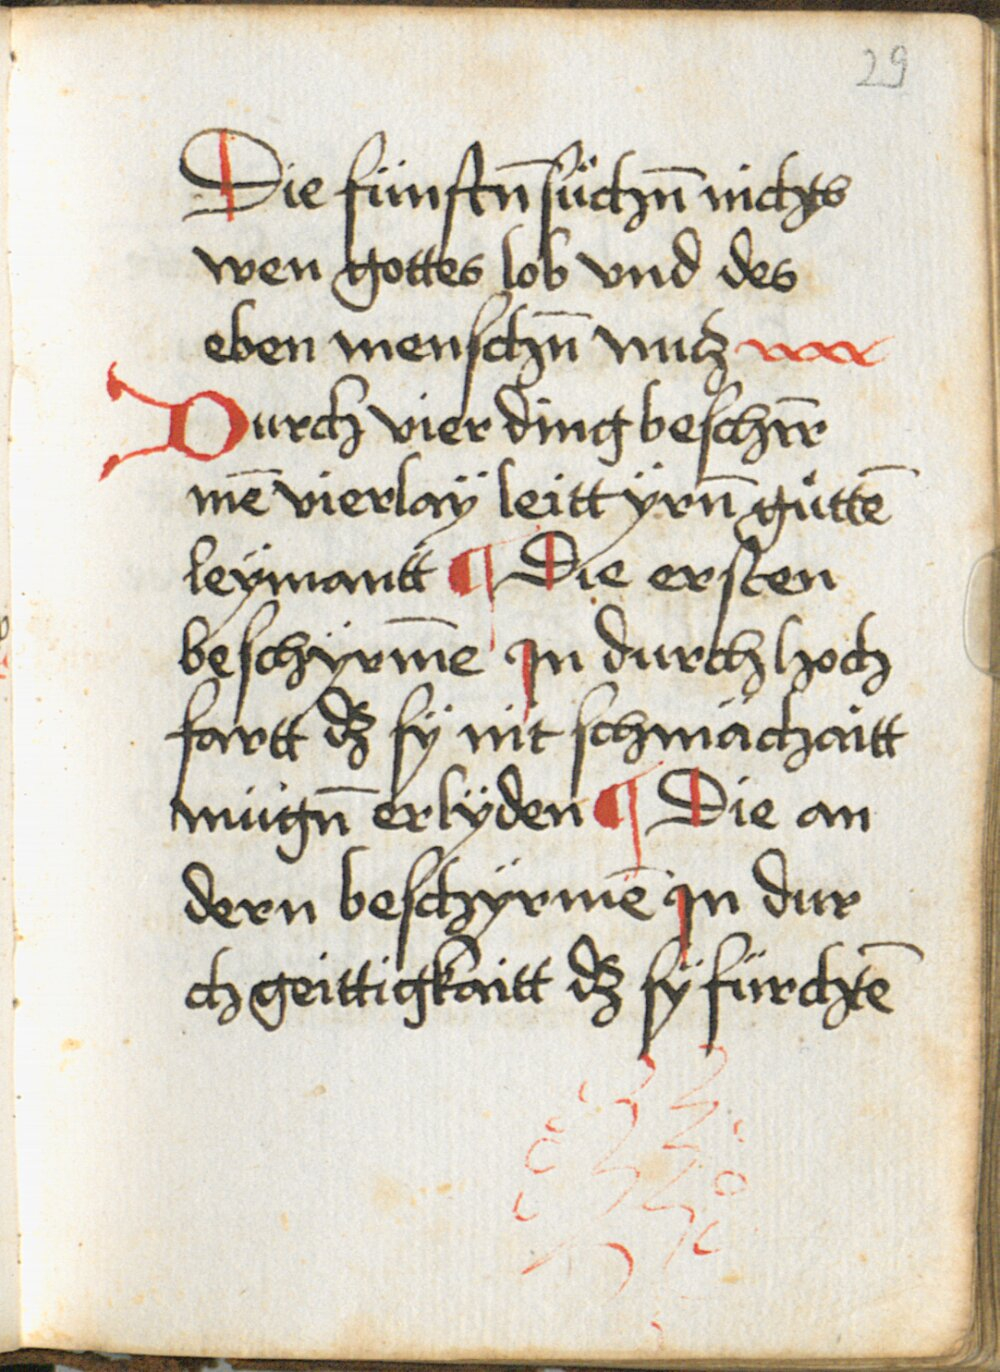 29
Die fünftn̄ sůchn̄ nichts
wen gottes lob vnd des
eben menschn̄ nutz
Durch vier ding beschir̄
mē vierlaÿ leitt ÿrn̄ gůttē
leÿmantt ¶ Die ersten
beschÿrm̄e in durch hoch
fartt dz sÿ nit schmächaitt
mügn̄ erlÿden ¶ Die an
dern beschÿrmē in dur
ch geittigkaitt dz sÿ fürchtē